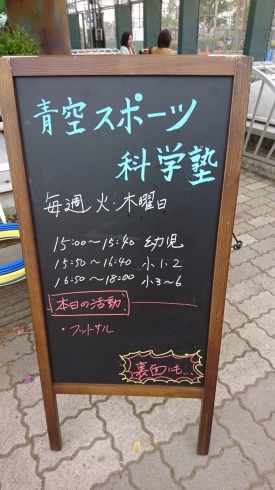 青空スポーツ
科学塾
毎週火・木曜日
15:00～15:40 幼児
15:50～16:40 小1.2
16:50～18:00 小3～6
本日の活動
・フットサル
裏面にも...